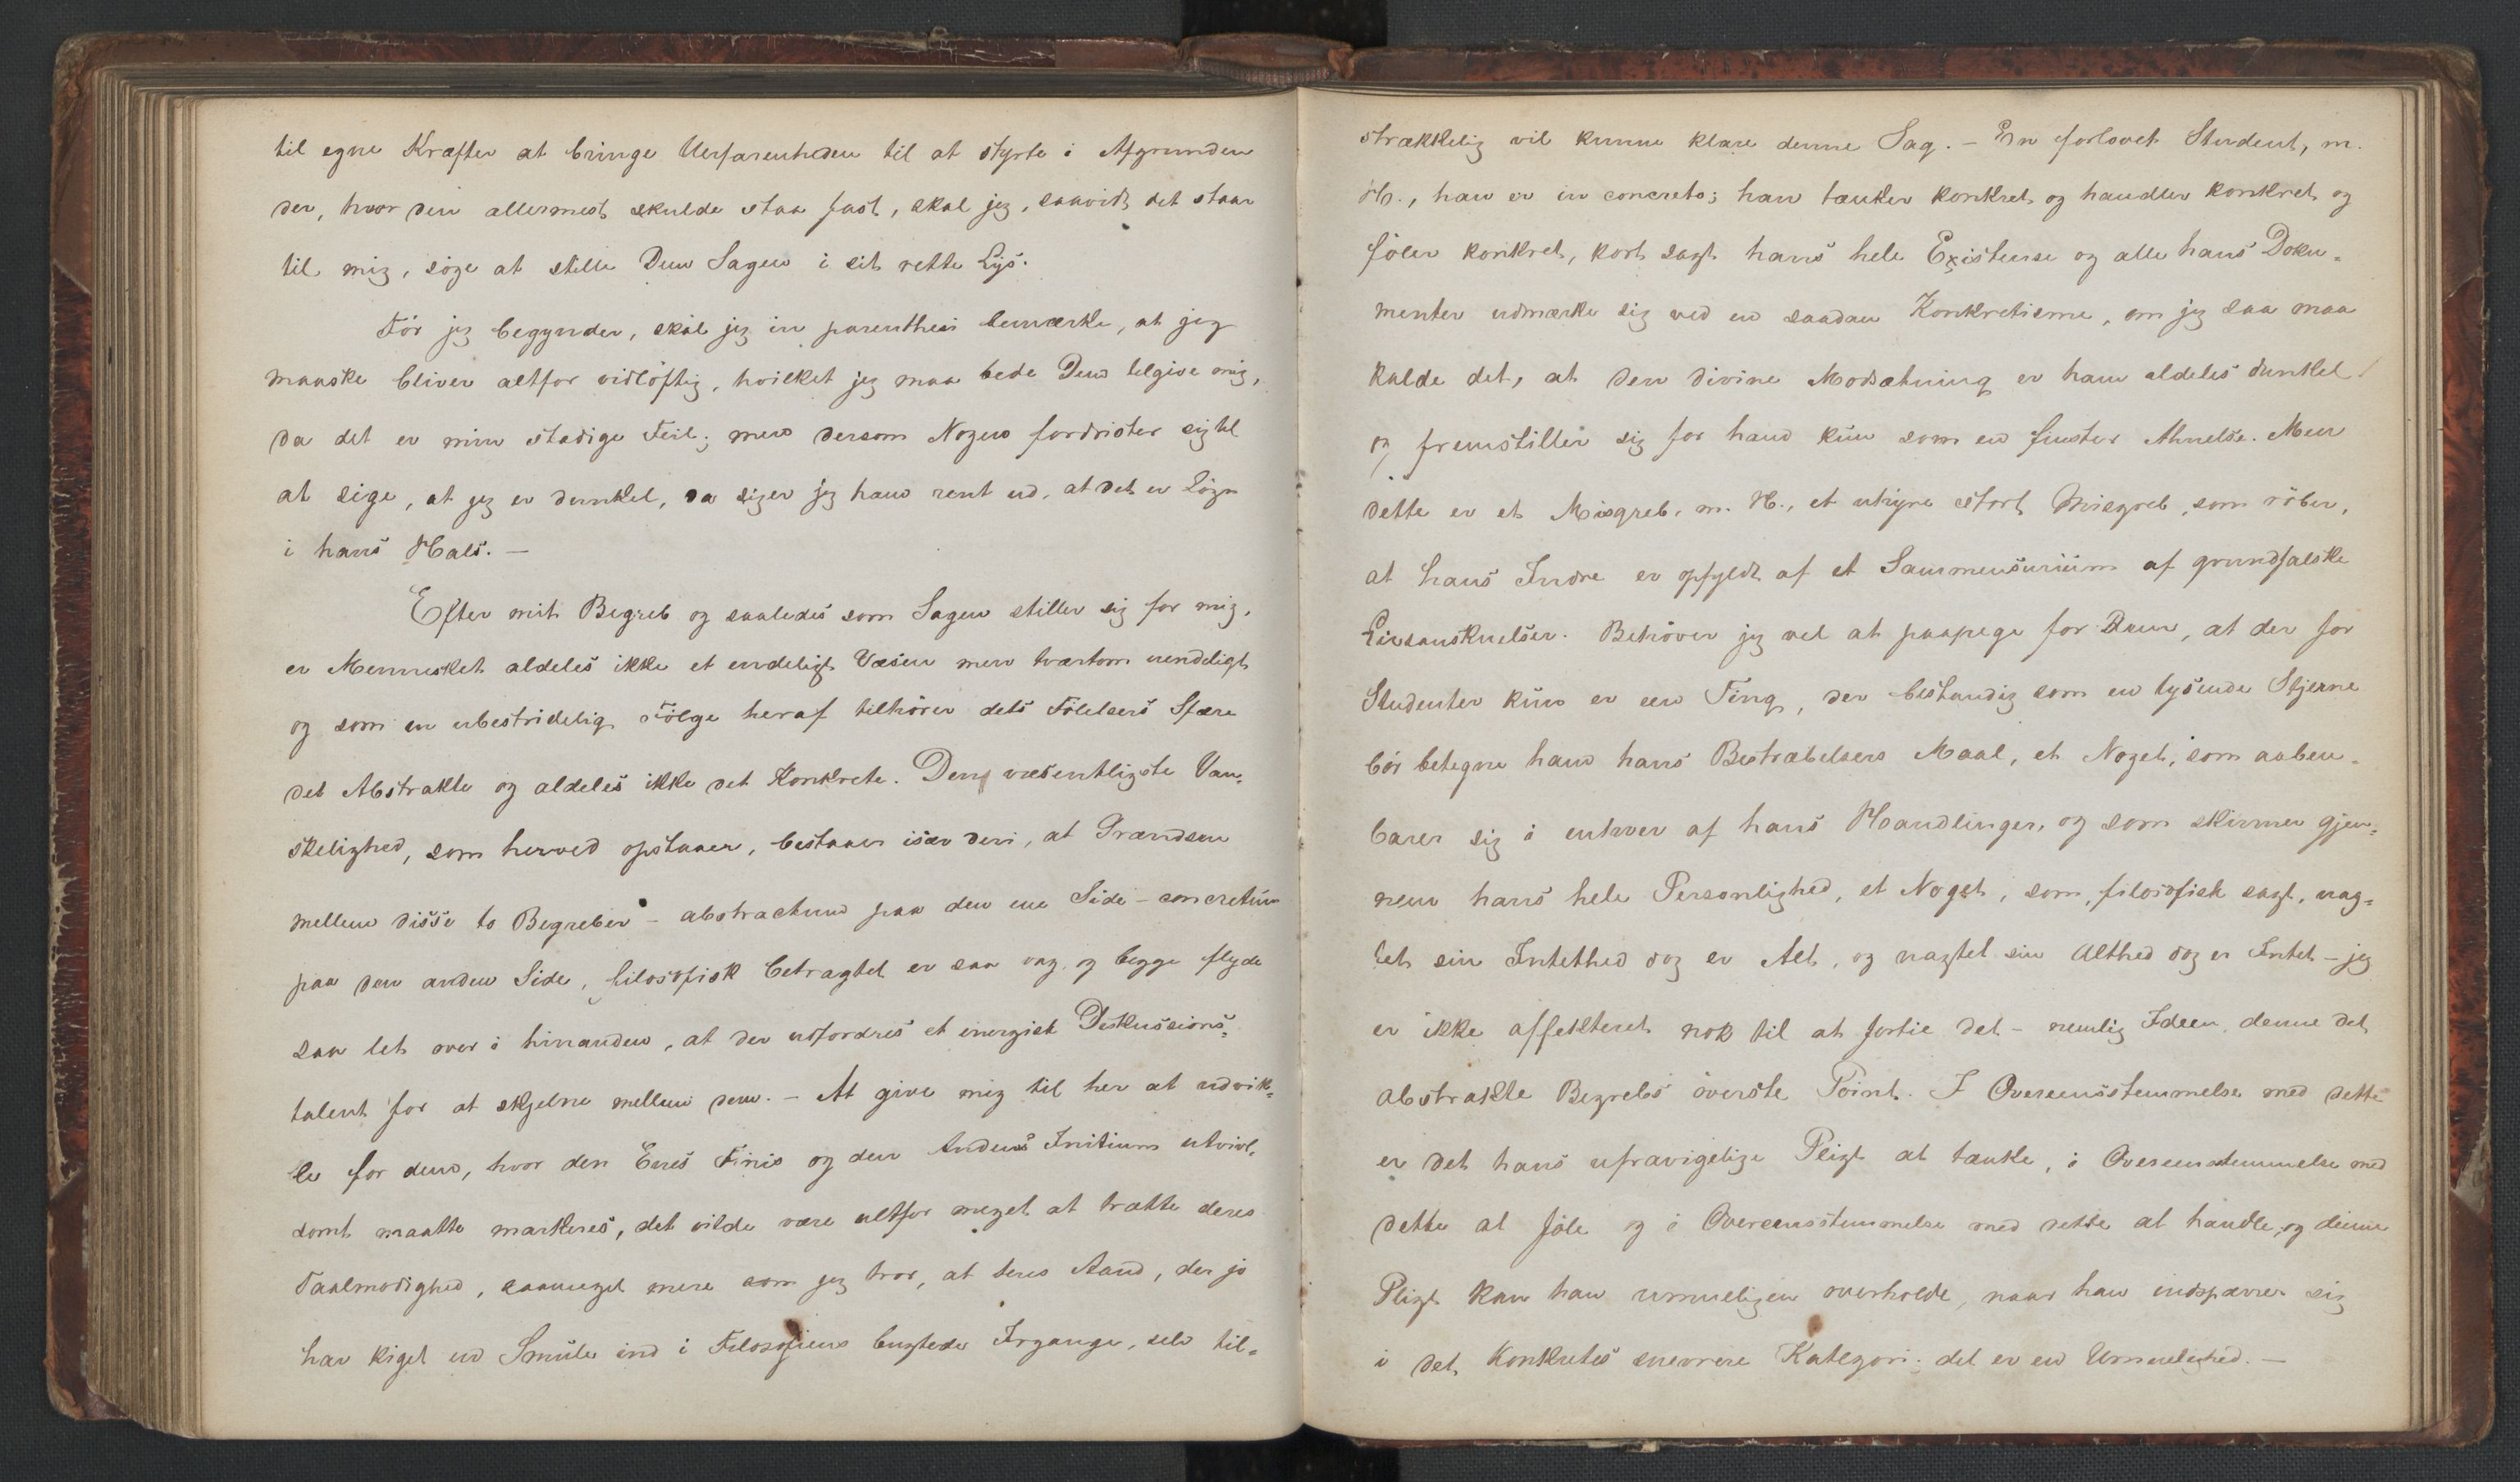 til egne Kræfter at bringe Uerfarenheden til at styrte i Afgrunden
der, hvor den allermest skulde staa fast, skal jeg, saavidt det staar
til mig, søge at stille Dem Sagen i sit rette Lys.
Før jeg begynder, skal jeg in parenthesi bemærke, at jeg
maaske bliver altfor vidløftig, hvilket jeg maa bede Dem tilgive mig,
da det er min stadige Feil; men dersom Nogen fordrister sig til
at sige, at jeg er dunkel, da siger jeg ham rent ud, at det er Løgn
i hans Hals. —
Efter mit Begreb og saaledes som Sagen stiller sig for mig,
er Mennesket aldeles ikke et endeligt Væsen men tvertom uendeligt
og som en ubestridelig Følge heraf tilhører dets Følelsers Sfære
det Abstrakte og aldeles ikke det Konkrete. Den væsentligste Van-
skelighed, som herved opstaaer, bestaaer især deri, at Grændsen
mellem disse to Begreber - abstractum paa den ene Side - concretum
paa den anden Side, filosofisk betragtet er saa vag og begge flyde
saa let over i hinanden, at der udfordres et energisk Diskussions-
talent for at skjelne mellem dem. - At give mig til her at udvik-
le for dem, hvor den Enes Finis og den Andens Initium utvivl-
somt maatte markeres, det vilde være altfor meget at trætte deres
Taalmodighed, saameget mere som jeg tror, at deres Aand, der jo
har kiget en Smule ind i Filosofiens bugtede Irgange, selv til-
strækkelig vil kunne klare denne Sag. - En forlovet Student, m.
H., han er in concreto; han tænker konkret og handler konkret og
føler konkret, kort sagt hans hele Existense og alle hans Doku-
menter udmærke sig ved en saadan Konkretisme, om jeg saa maa
kalde det, at den divine Modsætning er ham aldeles dunkel
og fremstiller sig for ham kun som en finster Ahnelse. Men
dette er et Misgreb, m. H., et uhyre stort Misgreb, som røber,
at hans Indre er opfyldt af et Sammensurium af grundfalske
Livsanskuelser. Behøver jeg vel at paapege for Dem, at der for
Studenter kun er een Ting, der bestandig som en lysende Stjerne
bør betegne ham hans Bestræbelsers Maal, et Noget, som aaben-
barer sig i enhver af hans Handlinger, og som skinner gjen-
nem hans hele Personlighed, et Noget, som, filosofisk sagt, uag-
tet sin Intethed dog er Alt, og uagtet sin Althed dog er Intet - jeg
er ikke affekteret nok til at fortie det - nemlig Ideen, denne det
abstrakte Begrebs øverste Point. I Overeensstemmelse med dette
er det hans ufravigelige Pligt at tænke, i Overeensstemmelse med
dette at føle og i Overeensstemmelse med dette at handle, og denne
Pligt kan han umueligen overholde, naar han indspærrer sig
i det Konkretes snevrere Kategori; det er en Umuelighed. —